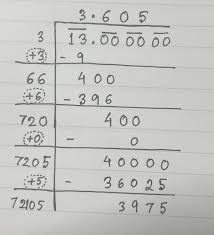 3.605
3 13.00 00 00
+3 - 9
66 400
+6 - 396
720 400
+0 - 0
7205 40000
+5 - 36025
72105 3975